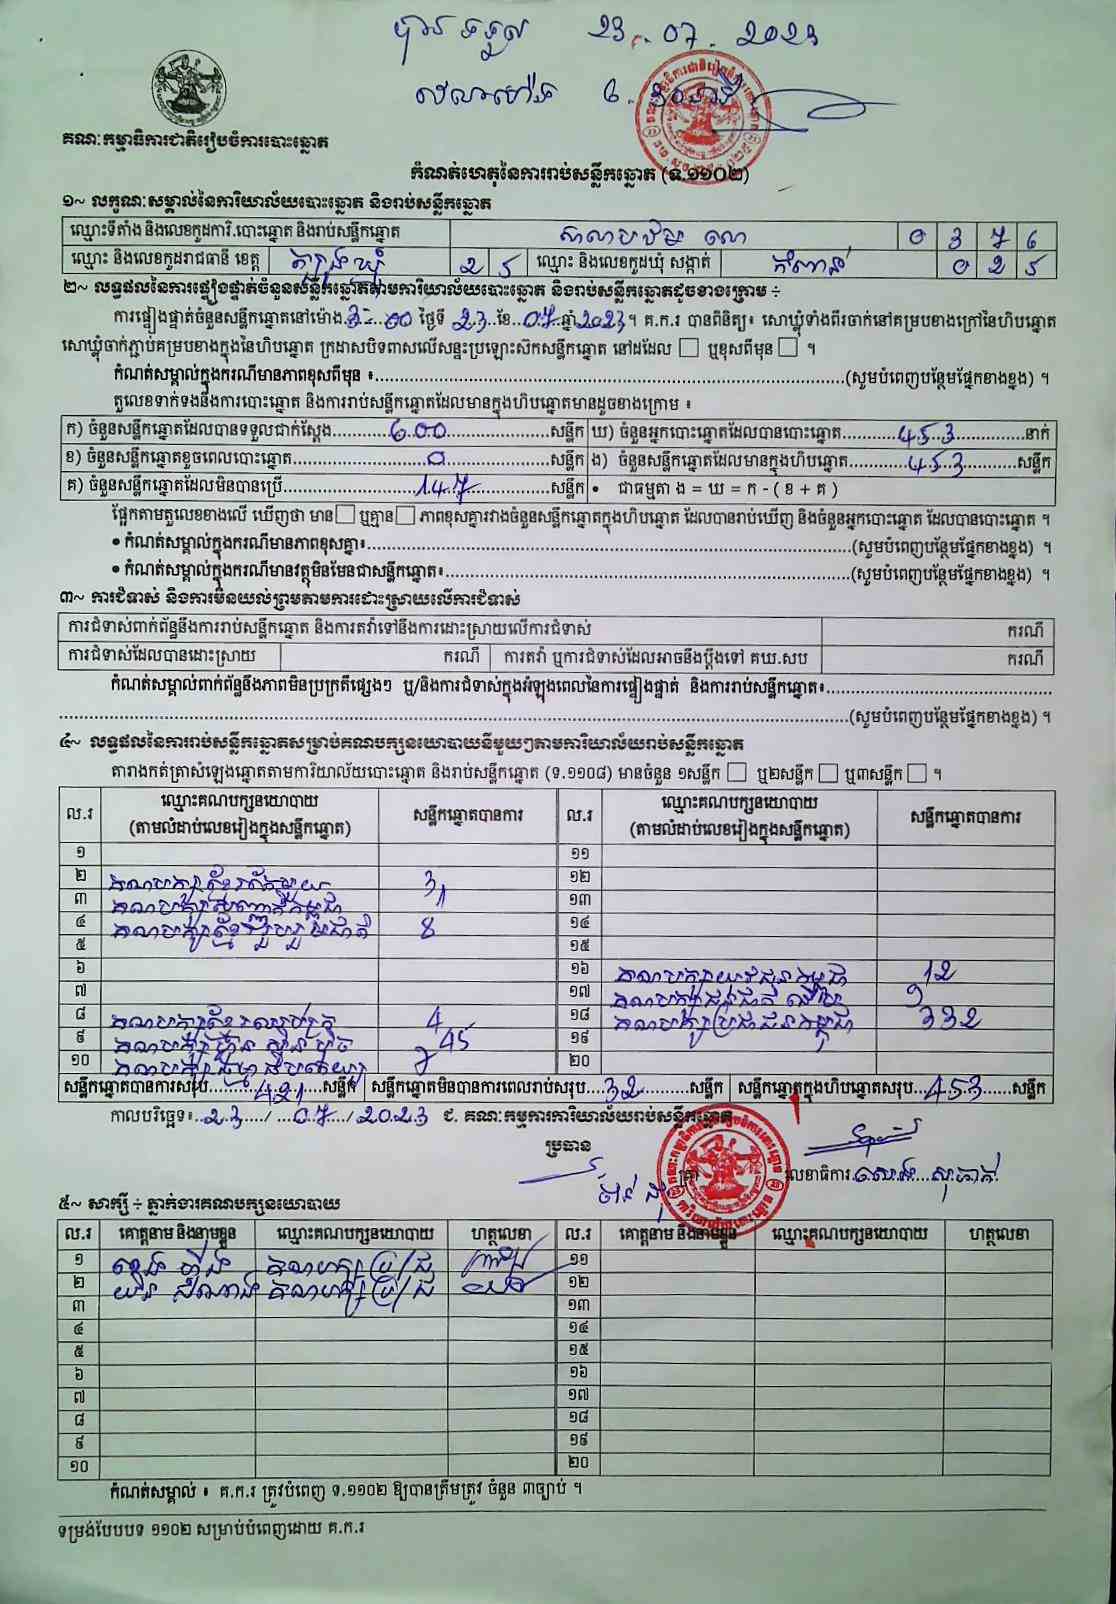 23.07.2023
គណៈកម្មាធិការជាតិរៀបចំការបោះឆ្នោត
កំណត់ហេតុនៃការរាប់សន្លឹកឆ្នោត (ទ.១១០២)
១~ លក្ខណៈសម្គាល់នៃការិយាល័យបោះឆ្នោត និងរាប់សន្លឹកឆ្នោត
ឈ្មោះទីតាំង និងលេខកូដការិ.បោះឆ្នោត និងរាប់សន្លឹកឆ្នោត 0 3 7 6
ឈ្មោះ និងលេខកូដរាជធានី ខេត្ត ត្បូងឃ្មុំ 2 5 ឈ្មោះ និងលេខកូដឃុំ សង្កាត់ 0 2 5
២~ លទ្ធផលនៃការផ្ទៀងផ្ទាត់ចំនួនសន្លឹកឆ្នោតតាមការិយាល័យបោះឆ្នោត និងរាប់សន្លឹកឆ្នោតដូចខាងក្រោម ÷
ការផ្ទៀងផ្ទាត់ចំនួនសន្លឹកឆ្នោតនៅម៉ោង 3-00 ថ្ងៃទី 23 ខែ 07 ឆ្នាំ 2023 ។ គ.ក.រ បានពិនិត្យ៖ សោឃ្លុំទាំងពីរចាក់នៅគម្របខាងក្រៅនៃហិបឆ្នោត
សោឃ្លុំចាក់ភ្ជាប់គម្របខាងក្នុងនៃហិបឆ្នោត ក្រដាសបិទពាសលើសន្ទះប្រឡោះស៊កសន្លឹកឆ្នោត នៅដដែល ☐ ឬខុសពីមុន ☐ ។
កំណត់សម្គាល់ក្នុងករណីមានភាពខុសពីមុន ៖ (សូមបំពេញបន្ថែមផ្នែកខាងខ្នង) ។
តួលេខទាក់ទងនឹងការបោះឆ្នោត និងការរាប់សន្លឹកឆ្នោតដែលមានក្នុងហិបឆ្នោតមានដូចខាងក្រោម ៖
ក) ចំនួនសន្លឹកឆ្នោតដែលបានទទួលជាក់ស្តែង 600 សន្លឹក ឃ) ចំនួនអ្នកបោះឆ្នោតដែលបានបោះឆ្នោត 453 នាក់
ខ) ចំនួនសន្លឹកឆ្នោតខូចពេលបោះឆ្នោត 0 សន្លឹក ង) ចំនួនសន្លឹកឆ្នោតដែលមានក្នុងហិបឆ្នោត 453 សន្លឹក
គ) ចំនួនសន្លឹកឆ្នោតដែលមិនបានប្រើ 147 សន្លឹក • ជាធម្មតា ង = ឃ = ក - ( ខ + គ )
ផ្អែកតាមតួលេខខាងលើ ឃើញថា មាន ☐ ឬគ្មាន ☐ ភាពខុសគ្នារវាងចំនួនសន្លឹកឆ្នោតក្នុងហិបឆ្នោត ដែលបានរាប់ឃើញ និងចំនួនអ្នកបោះឆ្នោត ដែលបានបោះឆ្នោត ។
• កំណត់សម្គាល់ក្នុងករណីមានភាពខុសគ្នា៖ (សូមបំពេញបន្ថែមផ្នែកខាងខ្នង) ។
• កំណត់សម្គាល់ក្នុងករណីមានវត្ថុមិនមែនជាសន្លឹកឆ្នោត៖ (សូមបំពេញបន្ថែមផ្នែកខាងខ្នង) ។
៣~ ការជំទាស់ និងការមិនយល់ព្រមតាមការដោះស្រាយលើការជំទាស់
ការជំទាស់ពាក់ព័ន្ធនឹងការរាប់សន្លឹកឆ្នោត និងការតវ៉ាទៅនឹងការដោះស្រាយលើការជំទាស់ ករណី
ការជំទាស់ដែលបានដោះស្រាយ ករណី ការតវ៉ា ឬការជំទាស់ដែលអាចនឹងប្តឹងទៅ គឃ.សប ករណី
កំណត់សម្គាល់ពាក់ព័ន្ធនឹងភាពមិនប្រក្រតីផ្សេងៗ ឬ/និងការជំទាស់ក្នុងអំឡុងពេលនៃការផ្ទៀងផ្ទាត់ និងការរាប់សន្លឹកឆ្នោត៖
(សូមបំពេញបន្ថែមផ្នែកខាងខ្នង) ។
៤~ លទ្ធផលនៃការរាប់សន្លឹកឆ្នោតសម្រាប់គណបក្សនយោបាយនីមួយៗតាមការិយាល័យរាប់សន្លឹកឆ្នោត
តារាងកត់ត្រាសំឡេងឆ្នោតតាមការិយាល័យបោះឆ្នោត និងរាប់សន្លឹកឆ្នោត (ទ.១១០៨) មានចំនួន ១សន្លឹក ☐ ឬ២សន្លឹក ☐ ឬ៣សន្លឹក ☐ ។
ល.រ ឈ្មោះគណបក្សនយោបាយ សន្លឹកឆ្នោតបានការ ល.រ ឈ្មោះគណបក្សនយោបាយ សន្លឹកឆ្នោតបានការ
(តាមលំដាប់លេខរៀងក្នុងសន្លឹកឆ្នោត) (តាមលំដាប់លេខរៀងក្នុងសន្លឹកឆ្នោត)
១ ១១
២ គណបក្សខ្មែរតែមួយ 3 ១២
៣ 1 ១៣
៤ គណបក្សខ្មែររួបរួមជាតិ 8 ១៤
៥ ១៥
៦ ១៦ គណបក្សយុវជនកម្ពុជា 12
៧ ១៧ 9
៨ 4 ១៨ គណបក្សប្រជាជនកម្ពុជា 332
៩ គណបក្សហ្វ៊ុនស៊ិនប៉ិច 45 ១៩
១០ គណបក្សធម្មាធិបតេយ្យ 7 ២០
សន្លឹកឆ្នោតបានការសរុប 421 សន្លឹក សន្លឹកឆ្នោតមិនបានការពេលរាប់សរុប 32 សន្លឹក សន្លឹកឆ្នោតក្នុងហិបឆ្នោតសរុប 453 សន្លឹក
កាលបរិច្ឆេទ៖ 23 / 07 / 2023 ជ. គណៈកម្មការការិយាល័យរាប់សន្លឹកឆ្នោត
ប្រធាន
លេខាធិការ
៥~ សាក្សី ÷ ភ្នាក់ងារគណបក្សនយោបាយ
ល.រ គោត្តនាម និងនាមខ្លួន ឈ្មោះគណបក្សនយោបាយ ហត្ថលេខា ល.រ គោត្តនាម និងនាមខ្លួន ឈ្មោះគណបក្សនយោបាយ ហត្ថលេខា
១ គណបក្ស ប្រ/ជ ១១
២ គណបក្ស ប្រ/ជ ១២
៣ ១៣
៤ ១៤
៥ ១៥
៦ ១៦
៧ ១៧
៨ ១៨
៩ ១៩
១០ ២០
កំណត់សម្គាល់ ៖ គ.ក.រ ត្រូវបំពេញ ទ.១១០២ ឱ្យបានត្រឹមត្រូវ ចំនួន ៣ច្បាប់ ។
ទម្រង់បែបបទ ១១០២ សម្រាប់បំពេញដោយ គ.ក.រ